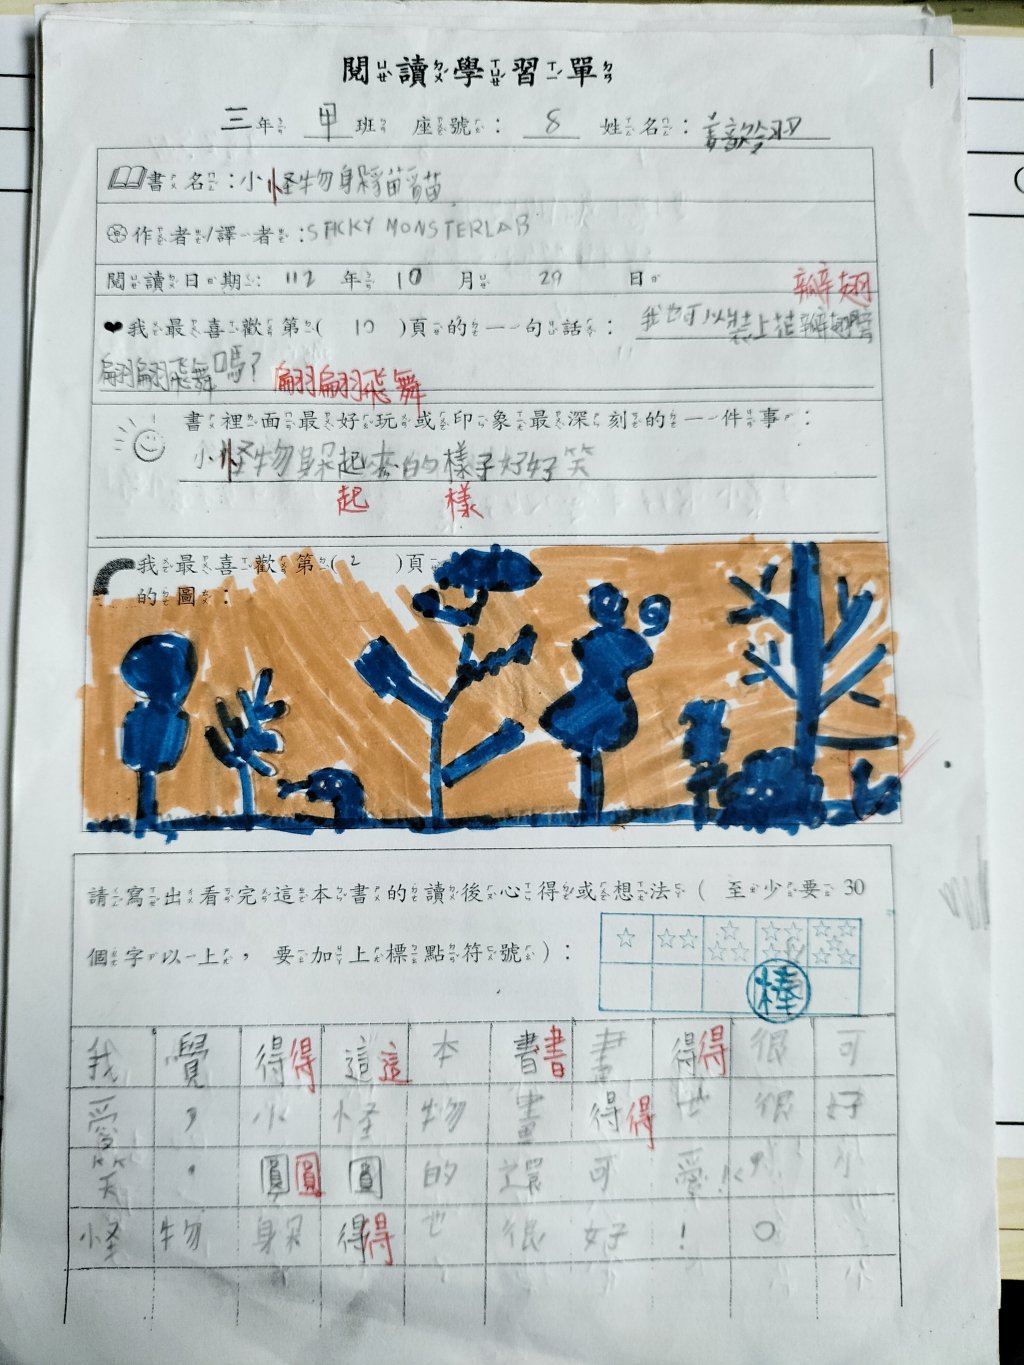 閱讀學習單
三年 甲班 座號：8 姓名：
書名：小怪物躲貓貓
作者/譯者：STICKY MONSTERLAB
閱讀日期：112年10月29日
瓣翅
我最喜歡第(10)頁的一句話：我也可以裝上花瓣翅膀
翩翩飛舞嗎？ 翩翩飛舞
書裡面最好玩或印象最深刻的一件事：
小怪物躲起來的樣子好好笑
起 樣
我最喜歡第(2)頁
的圖：
請寫出看完這本書的讀後心得或想法(至少要30
個字以上，要加上標點符號)：
☆ ☆☆ ☆☆☆ ☆☆☆☆ ☆☆☆☆☆
棒
我覺得得這這本書書畫得得很可
愛，小怪物畫得得也很好
笑，圓圓圓的還可愛！，小
怪物躲得得也很好！。